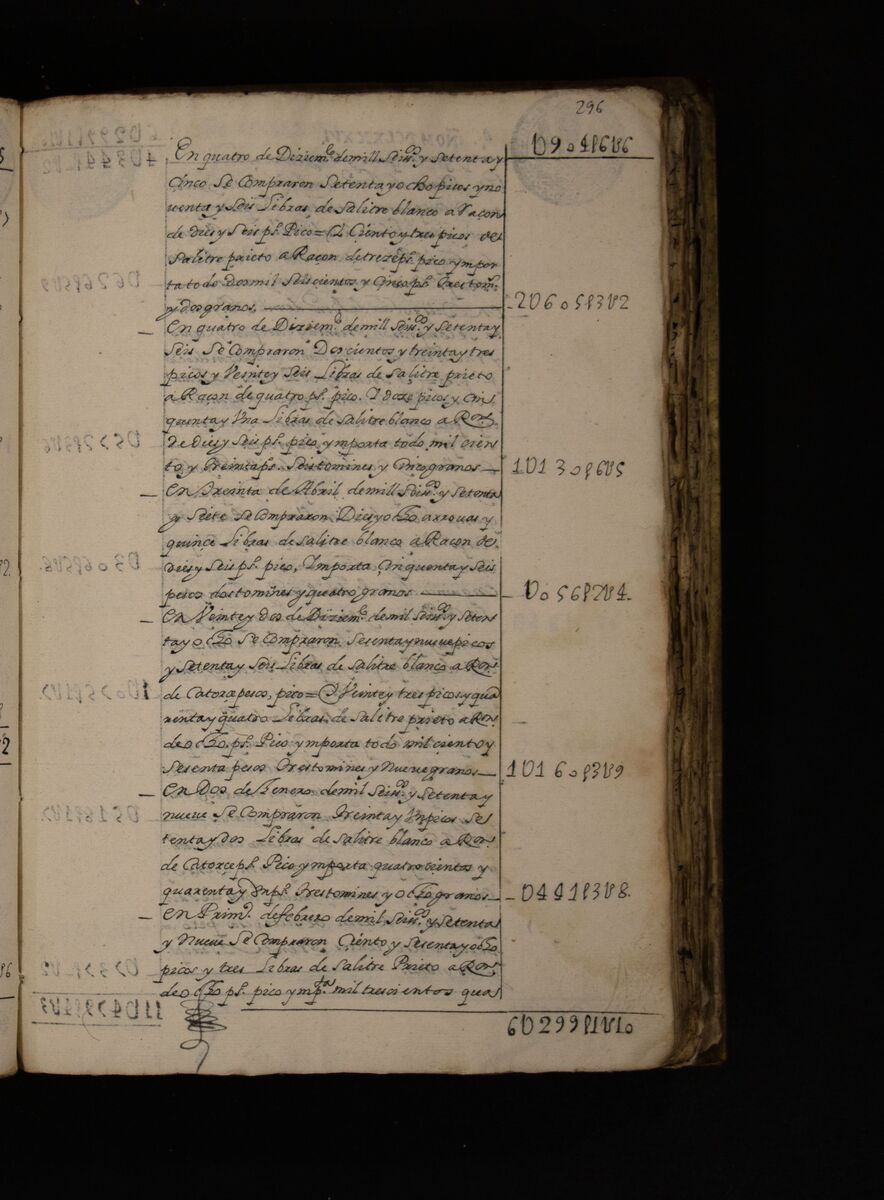 296
U9041616
En quatro de Diziem.e de mill Seis.os y Setenta y
Cinco Se Compraron Setenta y ocho picos y no
uenta y Seis Libras de Salitre blanco a Raçon
de dies y Seis ps. Pico= Y Ciento y tres picos de
Salitre prieto a Raçon de treze ps. pico y mpor
ta todo Dos mil Seis cientos y Cinco ps. tres tom.s
y dos granos
2U605p3U2
En quatro de Diziem.e de mill Seis.os y Setenta y
Seis Se Compraron Dos cientos y treinta y tres
picos y Veinte y Seis Libras de Salitre prieto
a Raçon de quatro ps. pico. Y doze picos y cin
quenta y Vna Libras de Salitre blanco a Ron.
De dies y Seis ps. pico y mporta todo mil cien
to y treinta ps. Seis tomines y Cinco granos
1U130p6U5
En Treinta de Abril de mill Seis.os y Setenta
y Siete Se Compraron Dies y ocho arrouas y
quince Libras de Salitre blanco a Raçon de
dies y Seis ps. pico, Ymporta Cinquenta y Seis
pesos dos tomines y quatro granos
U056p2U4
En Veinte y dos de Diziem.e de mil Seis.os y Seten
ta y ocho Se Compraron Sesenta y nueue picos
y Setenta y Seis Libras de Salitre blanco a Ron.
de Catorze pesos, pico= Y Veinte y tres picos y qua
renta y quatro Libras de Salitre prieto a Ron.
de ocho ps. Pico y mporta todo mil ciento y
Sesenta pesos tres tomines y Nueue granos
1U160p3U9
En Dos de Henero de mil Seis.os y Setenta y
nueue Se Compraron Treinta y Vn picos Se
tenta y dos Libras de Salitre blanco a Ron.
de Catorce ps. Pico y mporta quatro cientos y
quarenta y Vn ps. tres tomines y ocho granos
U441p3U8
En Prim.o de febrero de mil Seis.os y Setenta
y Nueue Se Compraron Ciento y Sesenta y ocho
picos y tres Libras de Salitre Prieto a Ron.
de ocho ps. pico y mp.tan mil trescientos qua
6U299p1U10